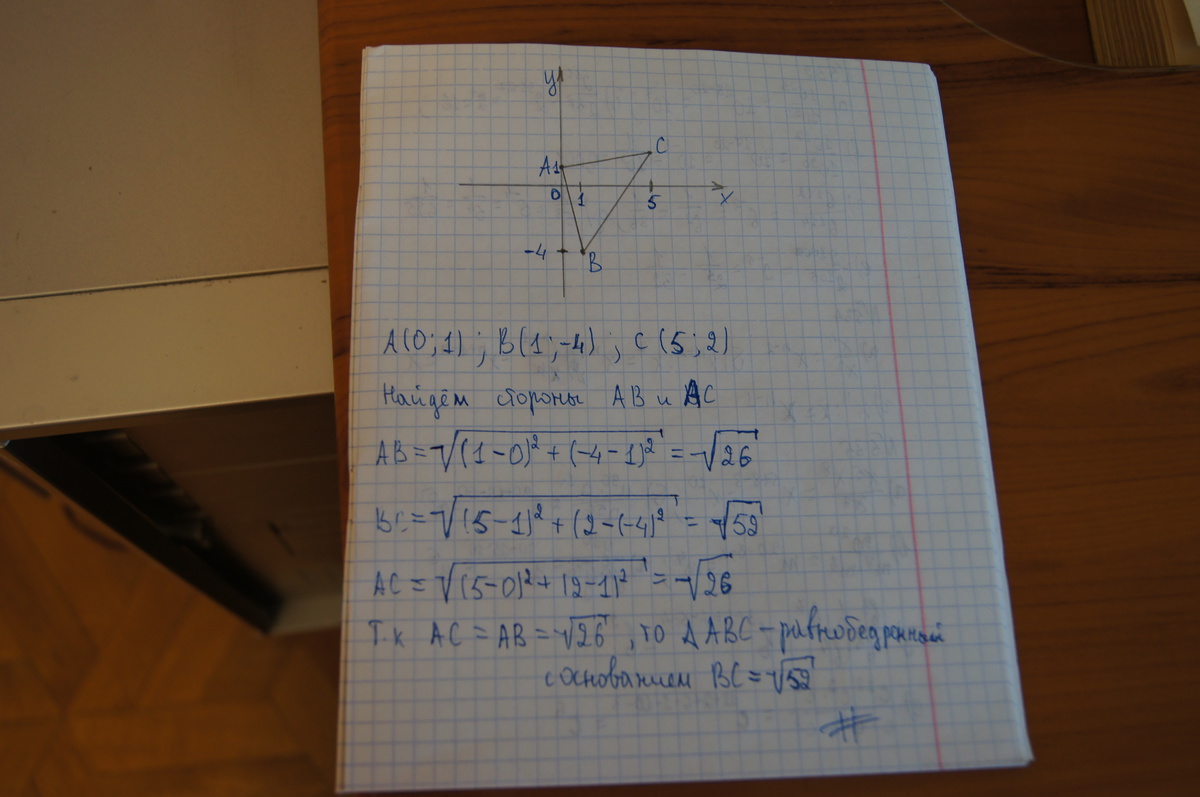 y
A 1 C
0 1 5 x
-4 B
A(0;1) ; B(1;-4) ; C(5;2)
Найдём стороны AB и AC
AB = √((1-0)² + (-4-1)²) = √26
BC = √((5-1)² + (2-(-4)²) = √52
AC = √((5-0)² + (2-1)²) = √26
Т.к AC = AB = √26 , то Δ ABC - равнобедренный
с основанием BC = √52
#